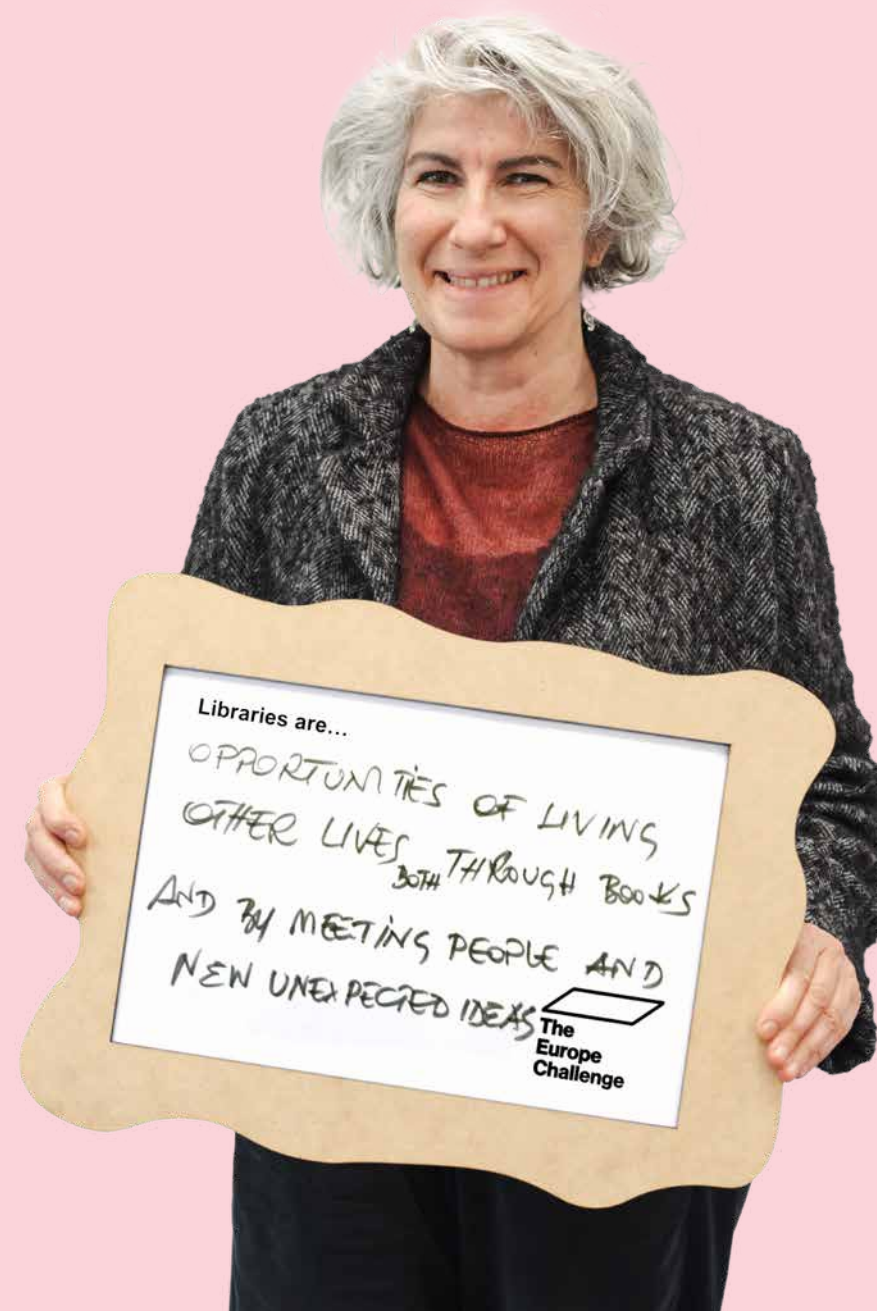 Libraries are...
OPPORTUNITIES OF LIVING
OTHER LIVES BOTH THROUGH BOOKS
AND BY MEETING PEOPLE AND
NEW UNEXPECTED IDEAS
The
Europe
Challenge